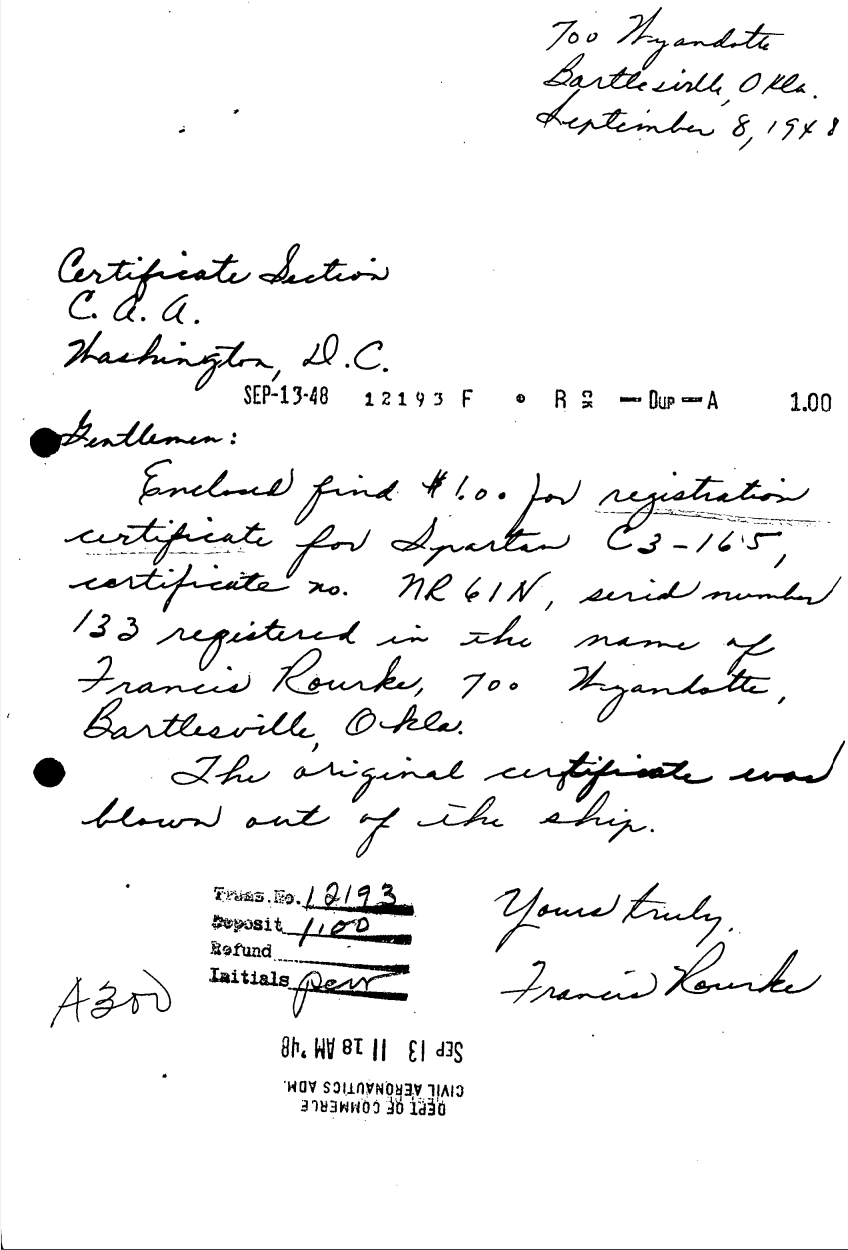 700 Wyandotte
Bartlesville, Okla.
September 8, 1948
Certificate Section
C. A. A.
Washington, D.C.
SEP-13-48 12193 F • R CK — DUP — A 1.00
Gentlemen:
Enclosed find $1.00 for registration
certificate for Spartan C3-165,
certificate no. NR61N, serial number
133 registered in the name of
Francis Rourke, 700 Wyandotte,
Bartlesville, Okla.
The original certificate was
blown out of the ship.
Trans. No. 12193
Deposit 1.00
Refund
Initials
Yours truly,
Francis Rourke
A300
SEP 13 11 18 AM '48
CIVIL AERONAUTICS ADM.
DEPT OF COMMERCE